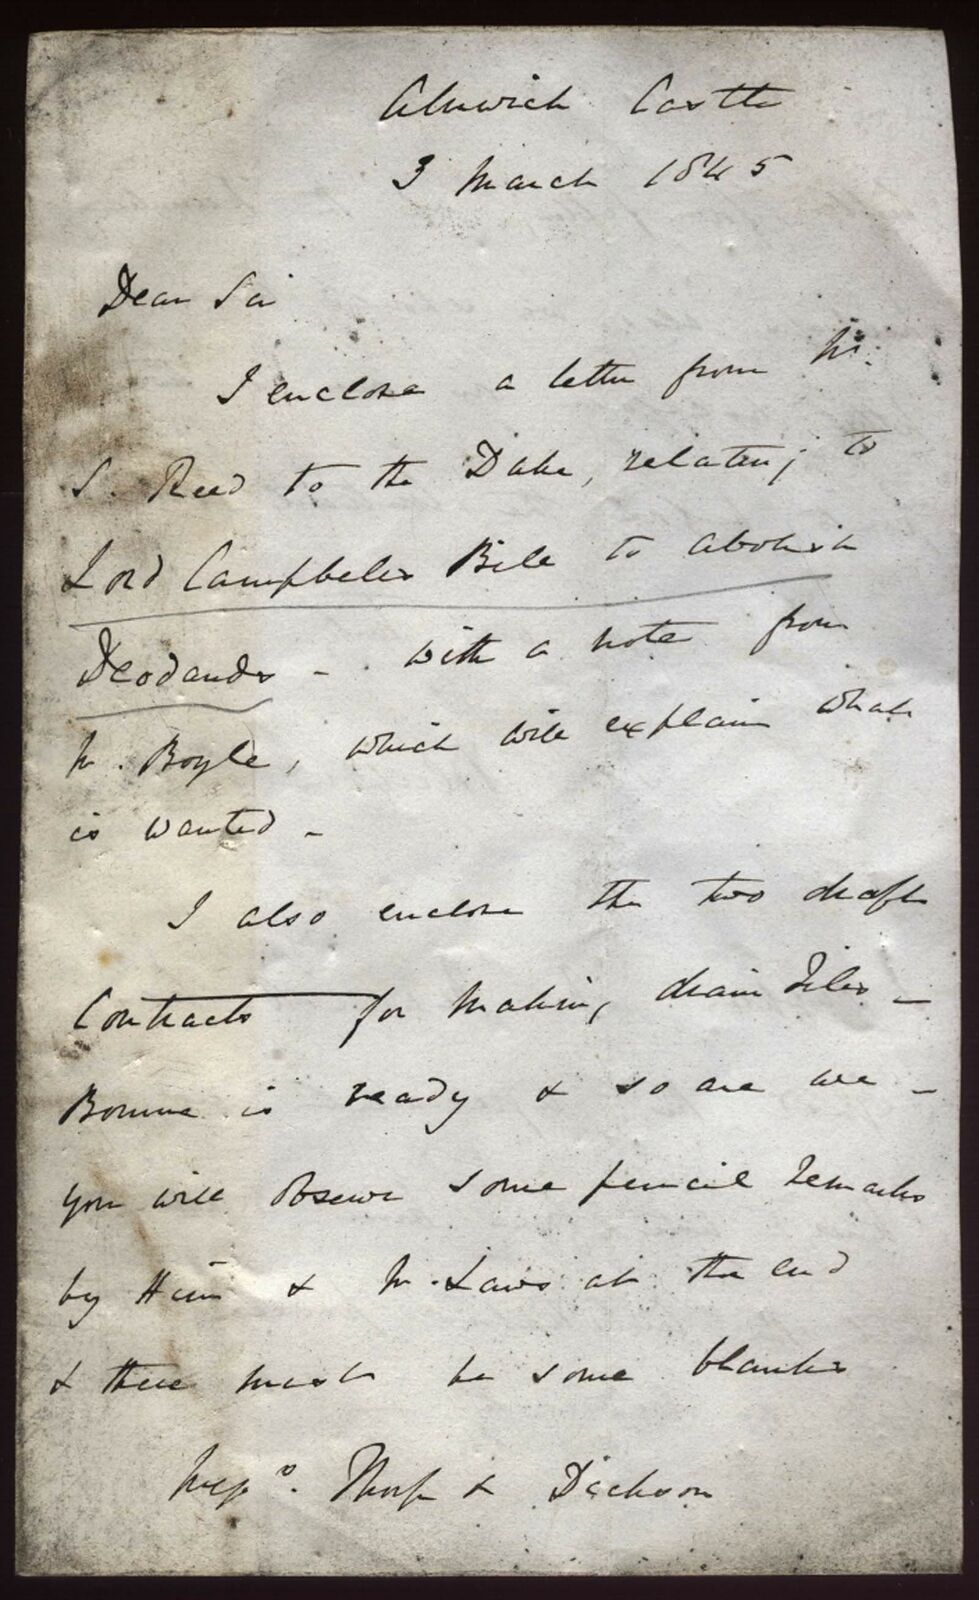 Alnwick Castle
3 March 1845
Dear Sir
I enclose a letter from Mr.
S. Reed to the Duke, relating to
Lord Campbells Bill to abolish
Deodands - with a note from
Mr. Boyle, which will explain what
is wanted -
I also enclose the two draft
Contracts for making drain Tiles -
is ready & so are we -
you will observe some pencil remarks
by Him & Mr. Laws at the end
& there must be some blanks
Messrs. Thorp & Dickson